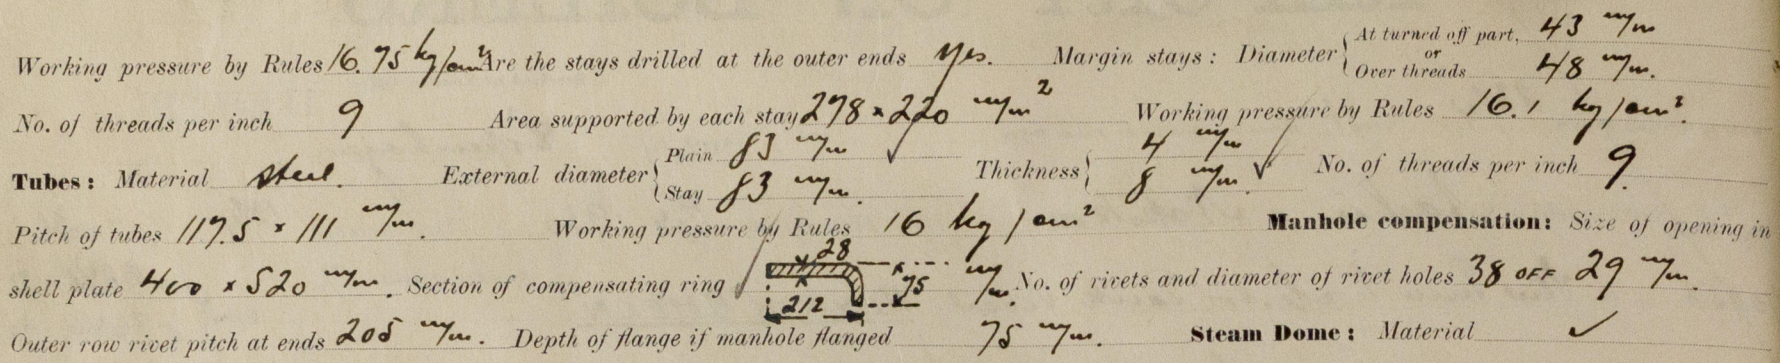 Working pressure by Rules 16.75 kg/cm² Are the stays drilled at the outer ends yes. Margin stays: Diameter { At turned off part, 43 m/m or Over threads 48 m/m.
No. of threads per inch 9 Area supported by each stay 278 × 220 m/m² Working pressure by Rules 16.1 kg/cm².
Tubes: Material steel. External diameter { Plain 83 m/m Stay 83 m/m. Thickness { 4 m/m 8 m/m ✓ No. of threads per inch 9.
Pitch of tubes 117.5 × 111 m/m. Working pressure by Rules 16 kg/cm² Manhole compensation: Size of opening in
shell plate 400 × 520 m/m. Section of compensating ring 28 212 75 m/m. No. of rivets and diameter of rivet holes 38 OFF 29 m/m.
Outer row rivet pitch at ends 205 m/m. Depth of flange if manhole flanged 75 m/m. Steam Dome: Material ✓